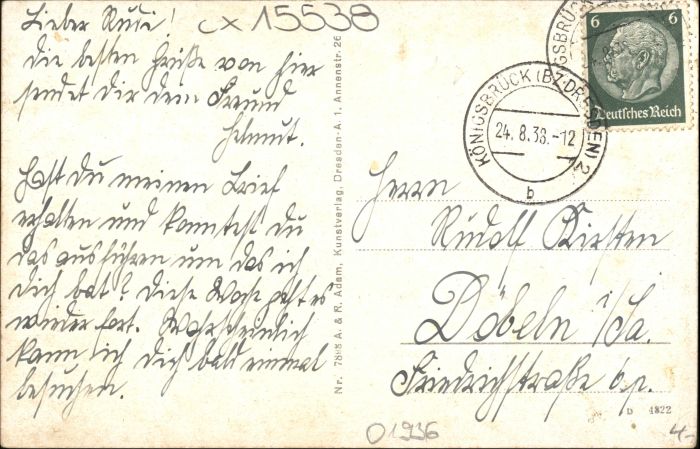 Lieber Rudi!
cx 15538
die besten Grüße von hier
sendet dir dein Freund
Helmut.
Hast du meinen Brief
erhalten und konntest du
das ausführen um das ich
dich bat? Diese Woche geht es
wieder fort. Wahrscheinlich
kann ich dich bald einmal
besuchen.
Nr. 7898 A. & R. Adam, Kunstverlag, Dresden-A. 1, Annenstr. 26
6 6
Deutsches Reich
KÖNIGSBRÜCK (BZ DRESDEN) 2
24.8.38.-12
b
Herrn
Rudolf Kirsten
Döbeln i/Sa.
Friedrichstraße 6 p.
D 4322
O 1936
4,-